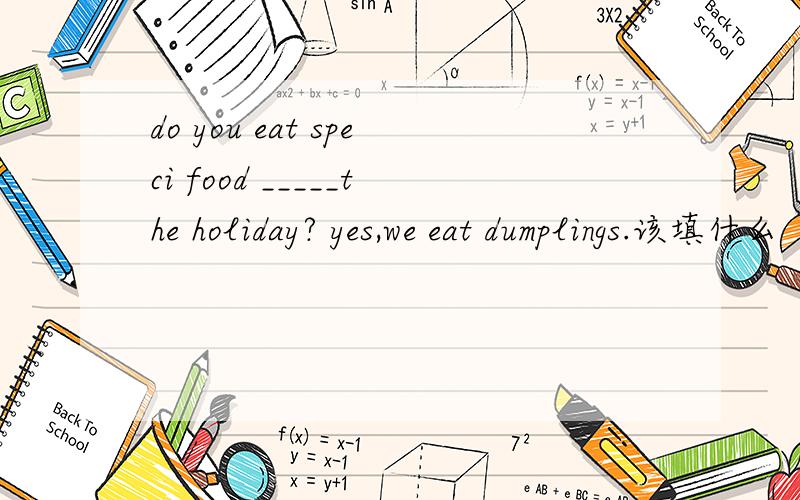 sin A
3X2
Back To
School
α
x
ax2 + bx +c = 0
f(x) = x-1
y = x-1
x = y+1
C
do you eat spe
ci food _____t
he holiday? yes,we eat dumplings.该填什么
Back To
School
f(x) = x-1
y = x-1
x = y+1
7²
e AB + e BC =